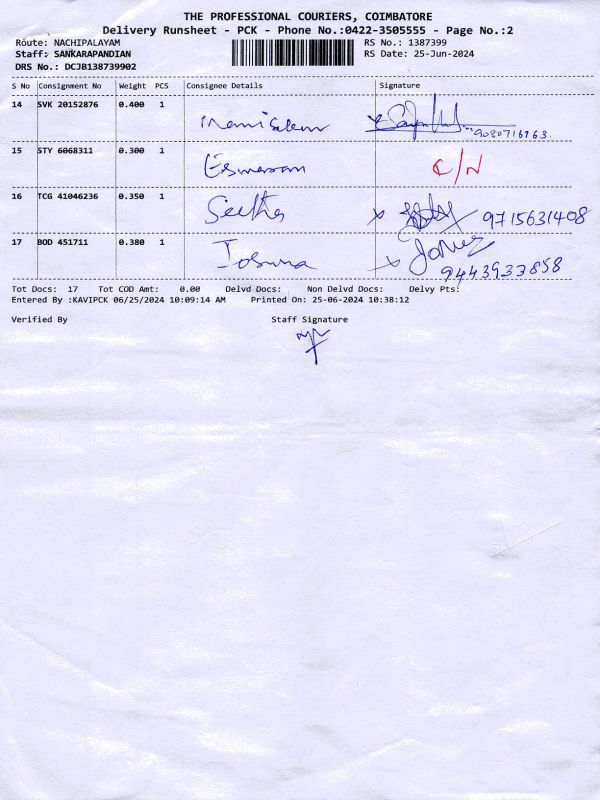 THE PROFESSIONAL COURIERS, COIMBATORE
Delivery Runsheet - PCK - Phone No.:0422-3505555 - Page No.:2
Route: NACHIPALAYAM RS No.: 1387399
Staff: SANKARAPANDIAN RS Date: 25-Jun-2024
DRS No.: DCJB138739902
S No Consignment No Weight PCS Consignee Details Signature
14 SVK 20152876 0.400 1
9080716763
15 STY 6068311 0.300 1 C/N
16 TCG 41046236 0.350 1 Seetha
x 9715631408
17 BOD 451711 0.380 1 Joshuva
x 9443933858
Tot Docs: 17 Tot COD Amt: 0.00 Delvd Docs: Non Delvd Docs: Delvy Pts:
Entered By :KAVIPCK 06/25/2024 10:09:14 AM Printed On: 25-06-2024 10:38:12
Verified By Staff Signature